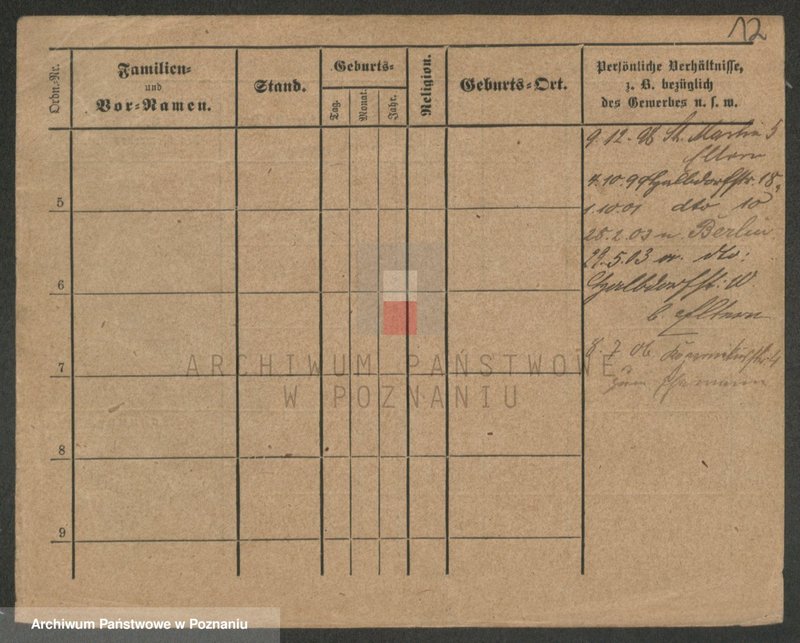 12
Ordn.-Nr.
Familien-
und
Vor-Namen.
Stand.
Geburts-
Tag.
Monat.
Jahr.
Religion.
Geburts-Ort.
Persönliche Verhältnisse,
z. B. bezüglich
des Gewerbes u. s. w.
9.12.98 St. Martin 5
Eltern
4.10.99 Halbdorfstr. 18
5
1.10.01 dto 10
28.2.03 n. Berlin
29.5.03 v. dto:
6
Halbdorfstr. 10
b. Eltern
8.7.06
7
zum Ehemann
8
9
ARCHIWUM PAŃSTWOWE
W POZNANIU
Archiwum Państwowe w Poznaniu